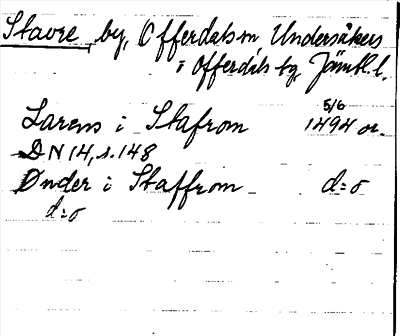 Stavre by, Offerdals sn Undersåkers
i Offerdals tg. Jämtl. l.
5/6
Larens i Stafrom 1494 or.
DN 14, s. 148
Ønder i Staffrom d:o
d:o